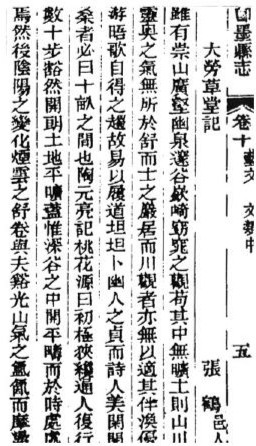 卽墨縣志 卷十 藝文 文類中 五
大勞草堂記 張鶴 邑人
雖有崇山廣壑幽泉邃谷嶔崎窈窕之觀苟其中無曠土則山川
靈奧之氣無所於舒而士之巖居而川觀者亦無以適其伴渙優
游晤歌自得之趣故易以履道坦坦卜幽人之貞而詩人美閑閑
桑者必曰十畝之間也陶元亮記桃花源曰初極狹纔通人復行
數十步豁然開朗土地平曠蓋惟深谷之中閒平疇而於時處處
焉然後陰陽之變化煙雲之舒卷與夫谿光山氣之氤氳而摩盪